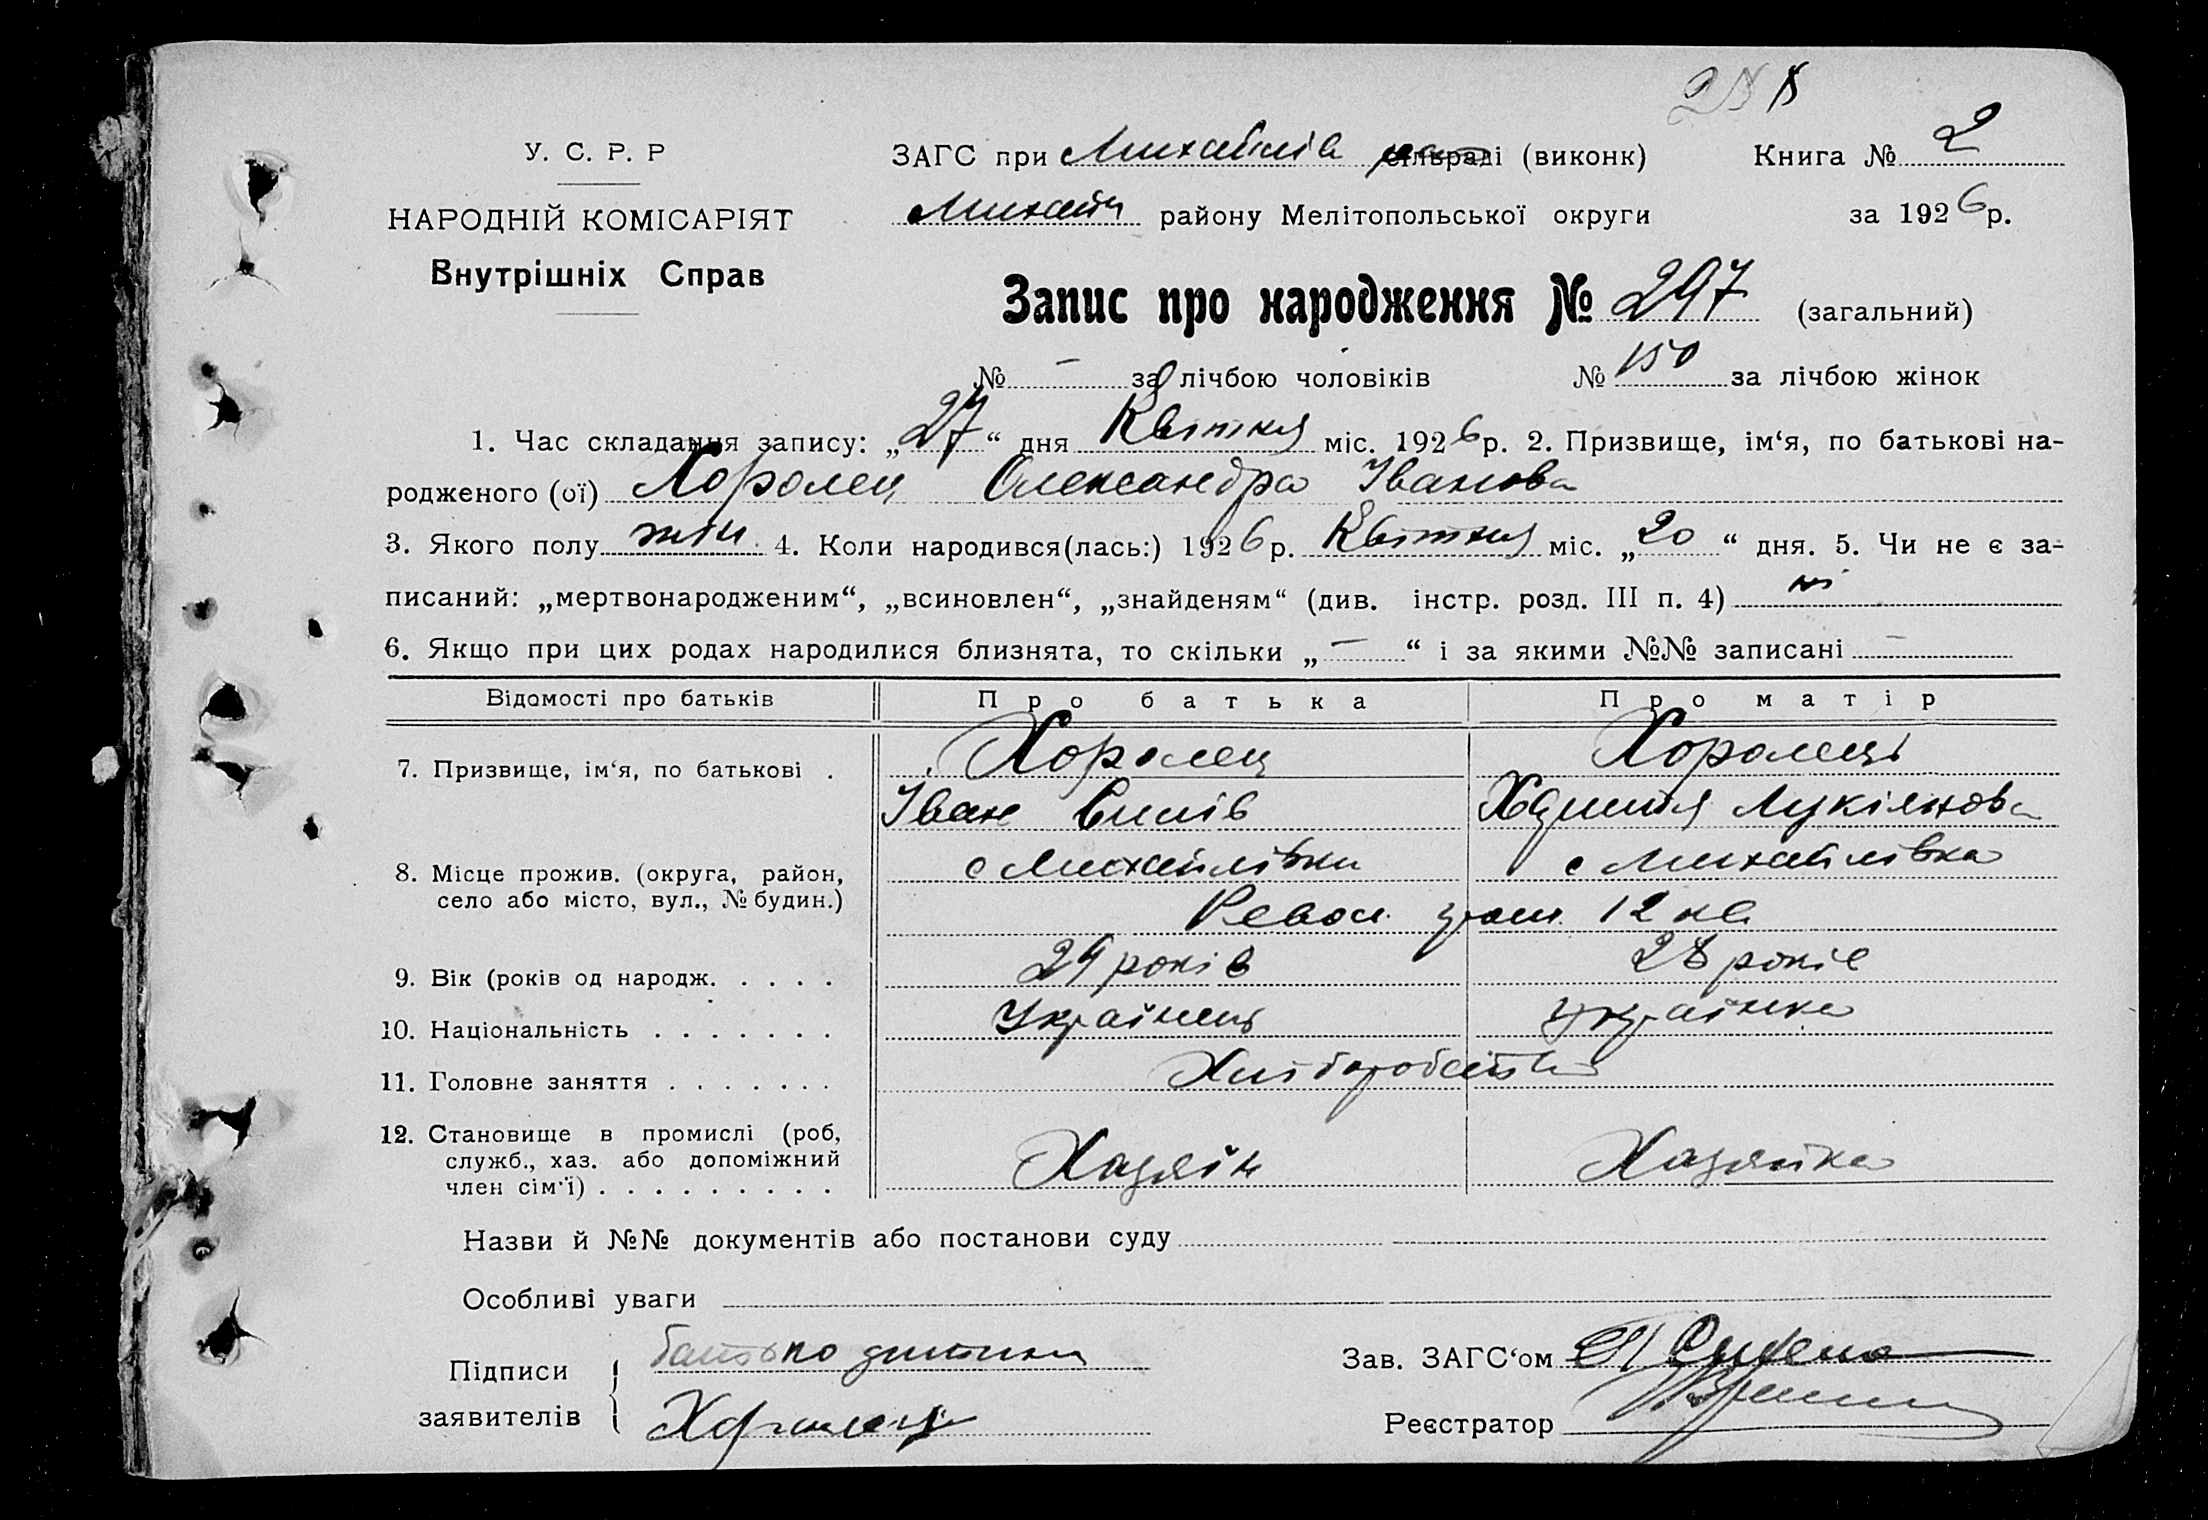 У. С. Р. Р
НАРОДНІЙ КОМІСАРІЯТ
Внутрішніх Справ
ЗАГС при Михайлів сільраді (виконк) Книга № 2
Михайл району Мелітопольської округи за 1926 р.
Запис про народження № 297 (загальний)
№ — за лічбою чоловіків № 150 за лічбою жінок
1. Час складання запису: „27“ дня Квітня міс. 1926 р. 2. Призвище, ім‘я, по батькові на-
родженого (ої) Хоролец Олександра Іванова
3. Якого полу жін. 4. Коли народився(лась:) 1926 р. Квітня міс. „20“ дня. 5. Чи не є за-
писаний: „мертвонародженим“, „всиновлен“, „знайденям“ (див. інстр. розд. III п. 4) ні
6. Якщо при цих родах народилися близнята, то скільки „—“ і за якими №№ записані —
Відомості про батьків Про батька Про матір
7. Призвище, ім‘я, по батькові . Хоролец Хоролець
Іван Лукіянова
8. Місце прожив. (округа, район, с Михайлівка с Михайлівка
село або місто, вул., № будин.) Револ. 12 кв
9. Вік (років од народж. . . . . 29 років 28 років
10. Національність . . . . . . . Українець українка
11. Головне заняття . . . . . . . Хліборобство
12. Становище в промислі (роб,
служб., хаз. або допоміжний Хазяїн Хазяйка
член сім‘ї) . . . . . . . . .
Назви й №№ документів або постанови суду
Особливі уваги
Підписи батько дитини Зав. ЗАГС‘ом
заявителів Хоролец Реєстратор